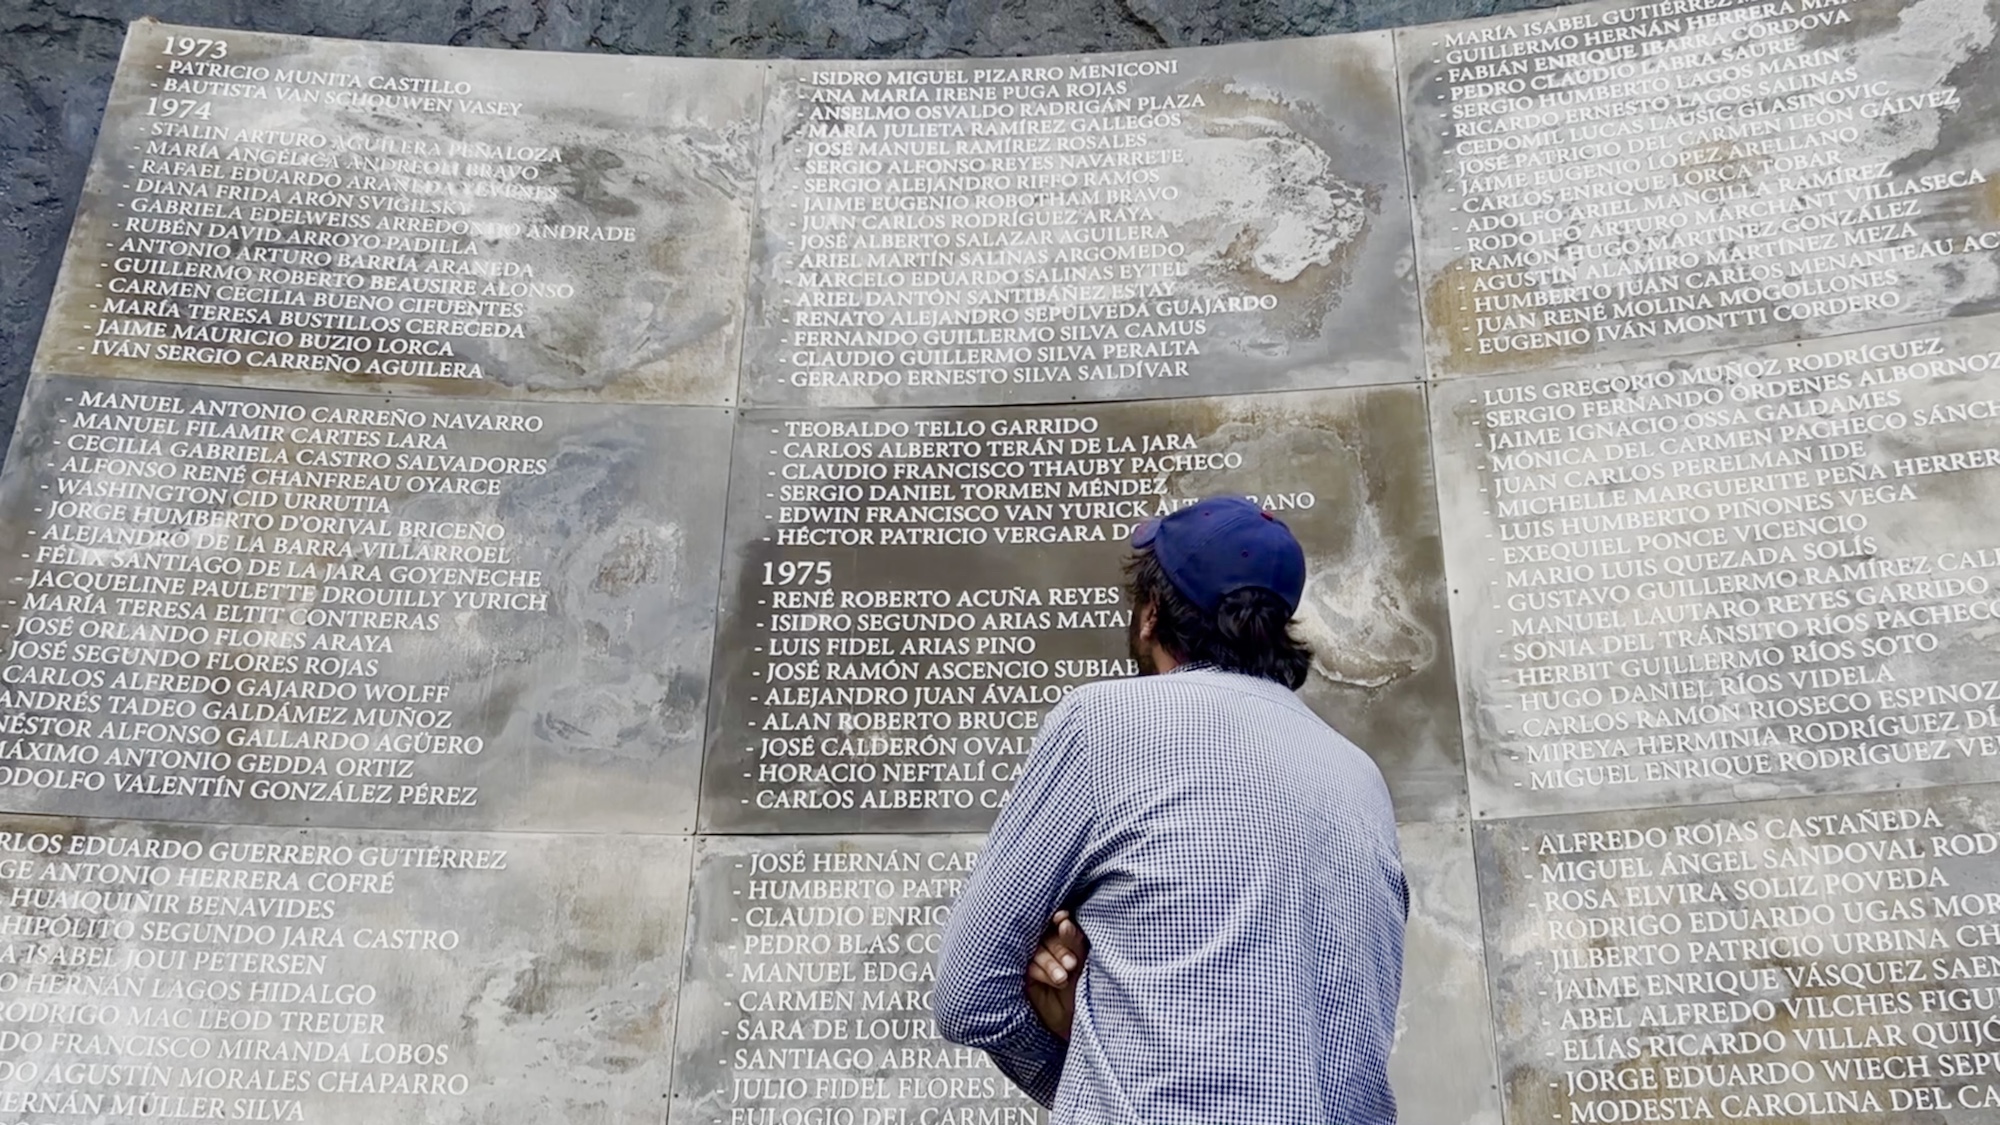 1973
- PATRICIO MUNITA CASTILLO
- BAUTISTA VAN SCHOUWEN VASEY
1974
- STALIN ARTURO AGUILERA PEÑALOZA
- MARÍA ANGÉLICA ANDREOLI BRAVO
- RAFAEL EDUARDO ARANEDA YÉVENES
- DIANA FRIDA ARÓN SVIGILSKY
- GABRIELA EDELWEISS ARREDONDO ANDRADE
- RUBÉN DAVID ARROYO PADILLA
- ANTONIO ARTURO BARRÍA ARANEDA
- GUILLERMO ROBERTO BEAUSIRE ALONSO
- CARMEN CECILIA BUENO CIFUENTES
- MARÍA TERESA BUSTILLOS CERECEDA
- JAIME MAURICIO BUZIO LORCA
- IVÁN SERGIO CARREÑO AGUILERA
- MANUEL ANTONIO CARREÑO NAVARRO
- MANUEL FILAMIR CARTES LARA
- CECILIA GABRIELA CASTRO SALVADORES
- ALFONSO RENÉ CHANFREAU OYARCE
- WASHINGTON CID URRUTIA
- JORGE HUMBERTO D'ORIVAL BRICEÑO
- ALEJANDRO DE LA BARRA VILLARROEL
- FÉLIX SANTIAGO DE LA JARA GOYENECHE
- JACQUELINE PAULETTE DROUILLY YURICH
- MARÍA TERESA ELTIT CONTRERAS
- JOSÉ ORLANDO FLORES ARAYA
- JOSÉ SEGUNDO FLORES ROJAS
CARLOS ALFREDO GAJARDO WOLFF
ANDRÉS TADEO GALDÁMEZ MUÑOZ
NÉSTOR ALFONSO GALLARDO AGÜERO
MÁXIMO ANTONIO GEDDA ORTIZ
ODOLFO VALENTÍN GONZÁLEZ PÉREZ
RLOS EDUARDO GUERRERO GUTIÉRREZ
GE ANTONIO HERRERA COFRÉ
HUAIQUINIR BENAVIDES
HIPÓLITO SEGUNDO JARA CASTRO
A ISABEL JOUI PETERSEN
O HERNÁN LAGOS HIDALGO
RODRIGO MAC LEOD TREUER
DO FRANCISCO MIRANDA LOBOS
DO AGUSTÍN MORALES CHAPARRO
ERNÁN MÜLLER SILVA
- ISIDRO MIGUEL PIZARRO MENICONI
- ANA MARÍA IRENE PUGA ROJAS
- ANSELMO OSVALDO RADRIGÁN PLAZA
- MARÍA JULIETA RAMÍREZ GALLEGOS
- JOSÉ MANUEL RAMÍREZ ROSALES
- SERGIO ALFONSO REYES NAVARRETE
- SERGIO ALEJANDRO RIFFO RAMOS
- JAIME EUGENIO ROBOTHAM BRAVO
- JUAN CARLOS RODRÍGUEZ ARAYA
- JOSÉ ALBERTO SALAZAR AGUILERA
- ARIEL MARTÍN SALINAS ARGOMEDO
- MARCELO EDUARDO SALINAS EYTEL
- ARIEL DANTÓN SANTIBÁÑEZ ESTAY
- RENATO ALEJANDRO SEPÚLVEDA GUAJARDO
- FERNANDO GUILLERMO SILVA CAMUS
- CLAUDIO GUILLERMO SILVA PERALTA
- GERARDO ERNESTO SILVA SALDÍVAR
- TEOBALDO TELLO GARRIDO
- CARLOS ALBERTO TERÁN DE LA JARA
- CLAUDIO FRANCISCO THAUBY PACHECO
- SERGIO DANIEL TORMEN MÉNDEZ
- EDWIN FRANCISCO VAN YURICK ALT RANO
- HÉCTOR PATRICIO VERGARA DO
1975
- RENÉ ROBERTO ACUÑA REYES
- ISIDRO SEGUNDO ARIAS MATA
- LUIS FIDEL ARIAS PINO
- JOSÉ RAMÓN ASCENCIO SUBIAB
- ALEJANDRO JUAN ÁVALOS
- ALAN ROBERTO BRUCE
- JOSÉ CALDERÓN OVAL
- HORACIO NEFTALÍ CA
- CARLOS ALBERTO CA
- JOSÉ HERNÁN CAR
- HUMBERTO PATR
- CLAUDIO ENRIC
- PEDRO BLAS CO
- MANUEL EDGA
- CARMEN MARG
- SARA DE LOURD
- SANTIAGO ABRAHA
- JULIO FIDEL FLORES P
- EULOGIO DEL CARMEN
- MARÍA ISABEL GUTIÉRREZ M
- GUILLERMO HERNÁN HERRERA MAN
- FABIÁN ENRIQUE IBARRA CÓRDOVA
- PEDRO CLAUDIO LABRA SAURE
- SERGIO HUMBERTO LAGOS MARÍN
- RICARDO ERNESTO LAGOS SALINAS
- CEDOMIL LUCAS LAUSIC GLASINOVIC
- JOSÉ PATRICIO DEL CARMEN LEÓN GÁLVEZ
- JAIME EUGENIO LÓPEZ ARELLANO
- CARLOS ENRIQUE LORCA TOBAR
- ADOLFO ARIEL MANCILLA RAMÍREZ
- RODOLFO ARTURO MARCHANT VILLASECA
- RAMÓN HUGO MARTÍNEZ GONZÁLEZ
- AGUSTÍN ALAMIRO MARTÍNEZ MEZA
- HUMBERTO JUAN CARLOS MENANTEAU AC
- JUAN RENÉ MOLINA MOGOLLONES
- EUGENIO IVÁN MONTTI CORDERO
- LUIS GREGORIO MUÑOZ RODRÍGUEZ
- SERGIO FERNANDO ÓRDENES ALBORNOZ
- JAIME IGNACIO OSSA GALDAMES
- MÓNICA DEL CARMEN PACHECO SÁNCH
- JUAN CARLOS PERELMAN IDE
- MICHELLE MARGUERITE PEÑA HERRER
- LUIS HUMBERTO PIÑONES VEGA
- EXEQUIEL PONCE VICENCIO
- MARIO LUIS QUEZADA SOLÍS
- GUSTAVO GUILLERMO RAMÍREZ CAL
- MANUEL LAUTARO REYES GARRIDO
- SONIA DEL TRÁNSITO RÍOS PACHECO
- HERBIT GUILLERMO RÍOS SOTO
- HUGO DANIEL RÍOS VIDELA
- CARLOS RAMÓN RIOSECO ESPINOZ
- MIREYA HERMINIA RODRÍGUEZ DÍ
- MIGUEL ENRIQUE RODRÍGUEZ VE
- ALFREDO ROJAS CASTAÑEDA
- MIGUEL ÁNGEL SANDOVAL ROD
- ROSA ELVIRA SOLIZ POVEDA
- RODRIGO EDUARDO UGAS MOR
- JILBERTO PATRICIO URBINA CH
- JAIME ENRIQUE VÁSQUEZ SAEN
- ABEL ALFREDO VILCHES FIGU
- ELÍAS RICARDO VILLAR QUIJÓ
- JORGE EDUARDO WIECH SEPÚ
- MODESTA CAROLINA DEL CA